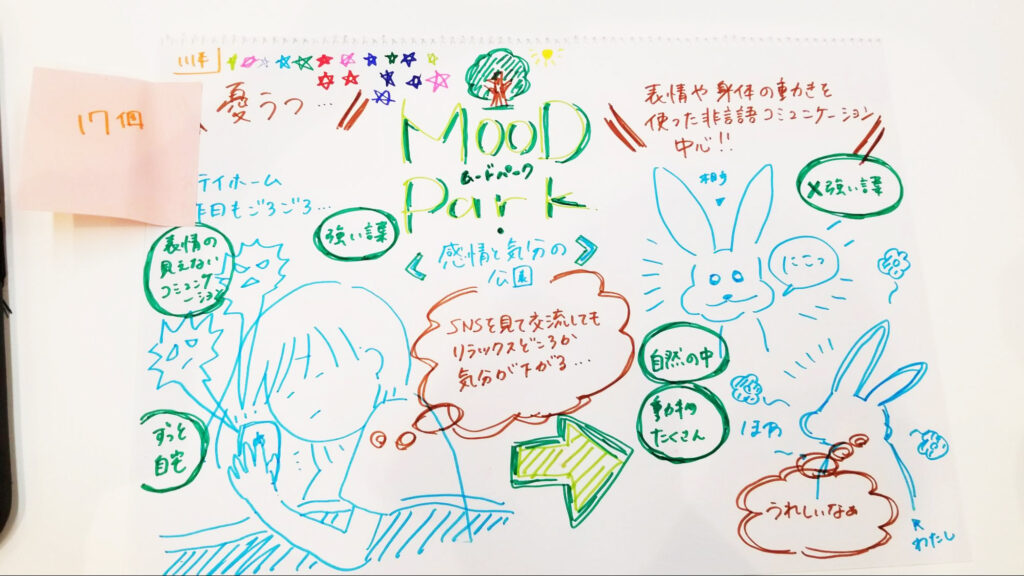 17個
憂うつ…
テイホーム
昨日もごろごろ…
MOOD
ムードパーク
Park
感情と気分の
公園
表情や身体の動きを
使った非言語コミュニケーション
中心!!
強い言葉
表情の
見えない
コミュニケ
ーション
ずっと
自宅
SNSを見て交流しても
リラックスどころか
気分が下がる…
相手
×強い言葉
にこっ
自然の中
動物
たくさん
ほわ
うれしいなぁ
わたし